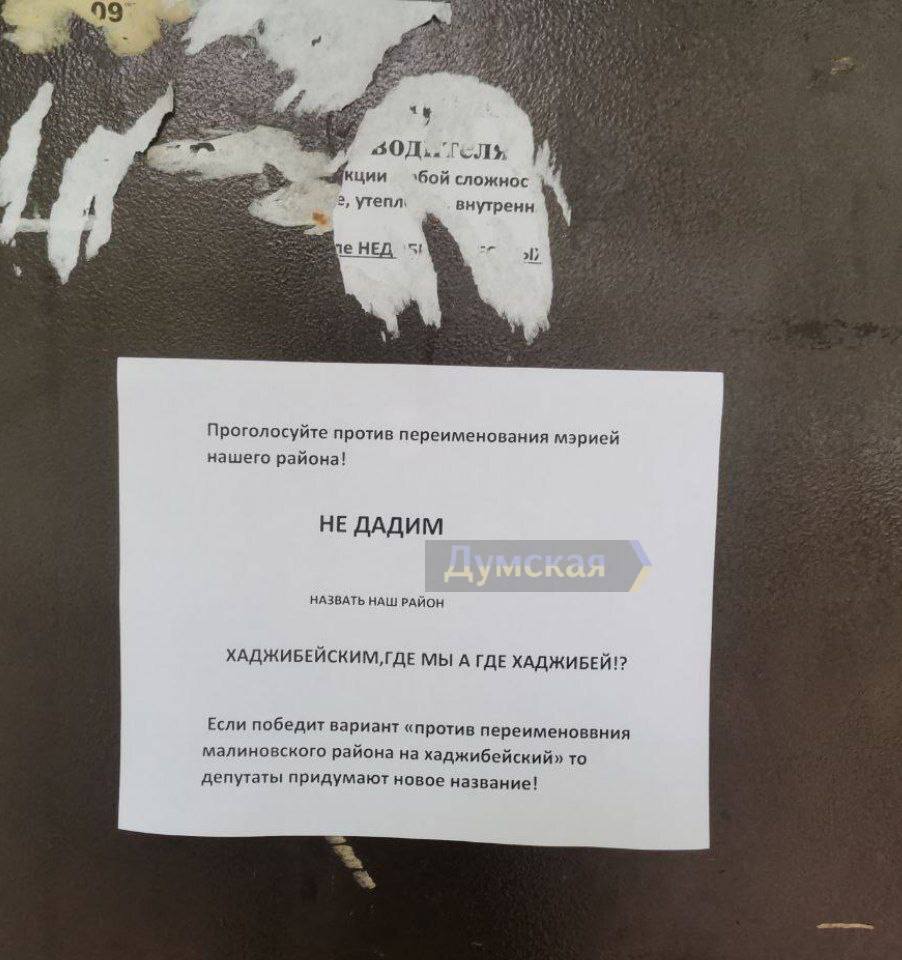 09
кции
сложнос
внутренн
НЕД
Проголосуйте против переименования мэрией
нашего района!
НЕ ДАДИМ
Думская
НАЗВАТЬ НАШ РАЙОН
ХАДЖИБЕЙСКИМ,ГДЕ МЫ А ГДЕ ХАДЖИБЕЙ!?
Если победит вариант «против переименоввния
малиновского района на хаджибейский» то
депутаты придумают новое название!